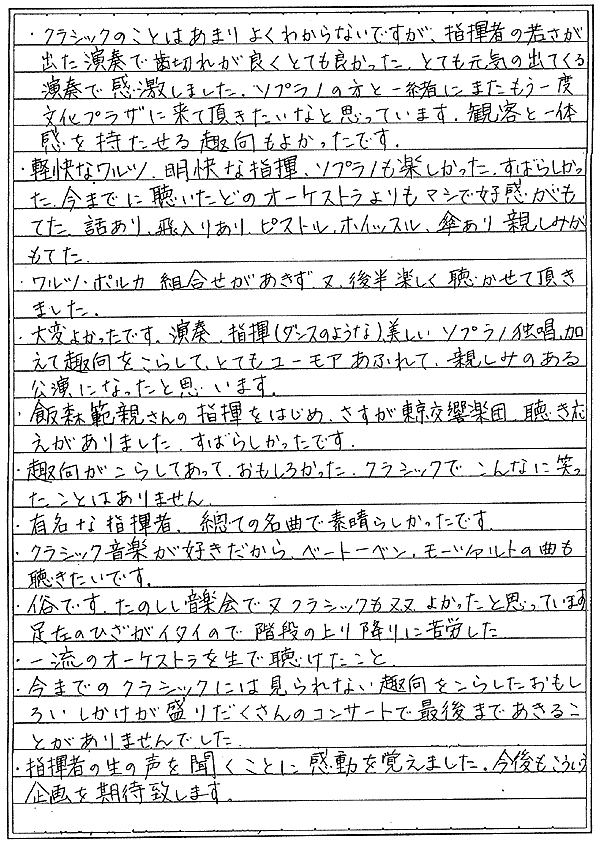 ・クラシックのことはあまりよくわからないですが、指揮者の若さが
出た演奏で歯切れが良くとても良かった．とても元気の出てくる
演奏で感激しました．ソプラノの方と一緒にまたもう一度
文化プラザに来て頂きたいなと思っています．観客と一体
感を持たせる趣向もよかったです．
・軽快なワルツ、明快な指揮、ソプラノも楽しかった．すばらしかっ
た．今までに聴いたどのオーケストラよりもマシで好感がも
てた．話あり、飛入りあり、ピストル、ホイッスル、傘あり 親しみが
もてた．
・ワルツ・ポルカ 組合せがあきず、又、後半楽しく聴かせて頂き
ました．
・大変よかったです。演奏、指揮(ダンスのような)、美しいソプラノ独唱、加
えて趣向をこらして、とてもユーモアあふれて、親しみのある
公演になったと思います。
・飯森範親さんの指揮をはじめ、さすが東京交響楽団、聴き応
えがありました．すばらしかったです．
・趣向がこらしてあって、おもしろかった．クラシックでこんなに笑っ
たことはありません．
・有名な指揮者、総ての名曲で素晴らしかったです．
・クラシック音楽が好きだから、ベートーベン、モーツァルトの曲も
聴きたいです。
・俗です．たのしい音楽会で又クラシックも又又よかったと思っています
足左のひざがイタイので階段の上り降りに苦労した
・一流のオーケストラを生で聴けたこと．
・今までのクラシックには見られない趣向をこらしたおもし
ろいしかけが盛りだくさんのコンサートで最後まであきるこ
とがありませんでした
・指揮者の生の声を聞くことに感動を覚えました。今後もこういう
企画を期待致します。